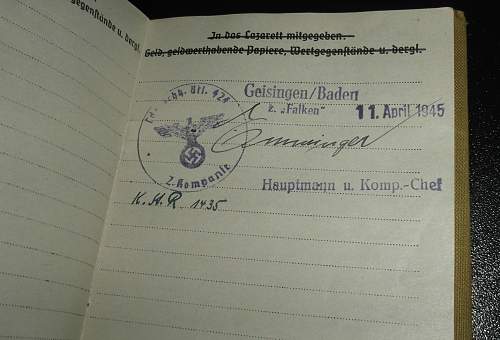 In das Lazarett mitgegeben.
Geld, geldwerthabende Papiere, Wertgegenstände u. dergl.
schtz. Btl. 424
2. Kompanie
Geisingen/Baden
z. „Falken“
11. April 1945
Hauptmann u. Komp.-Chef
K.St.R 1435